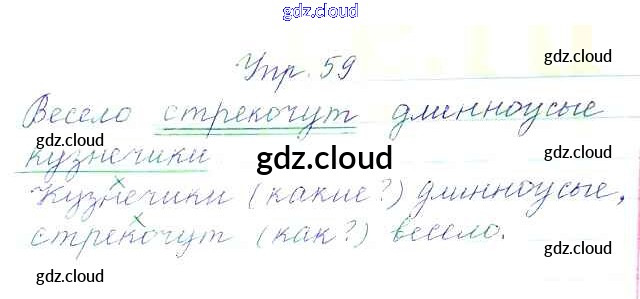 gdz.cloud
Упр. 59
gdz.cloud
Весело стрекочут длинноусые
gdz.cloud
gdz.cloud
кузнечики
gdz.cloud
Кузнечики (какие?) длинноусые,
стрекочут (как?) весело.
gdz.cloud
gdz.cloud